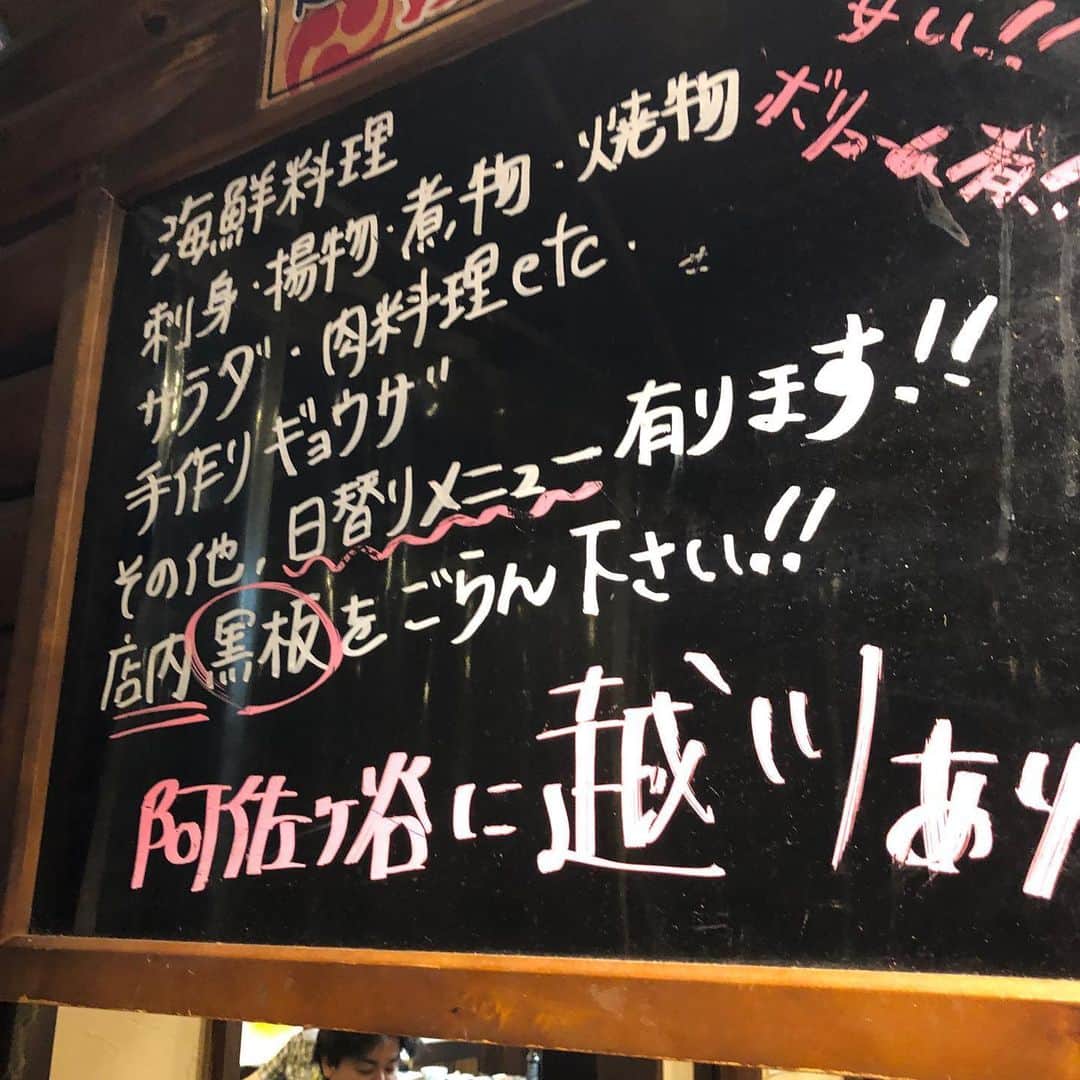 海鮮料理
刺身・揚物・煮物・焼物
サラダ・肉料理etc.
手作りギョウザ
その他、日替りメニュー有ります!!
店内黒板をごらん下さい!!
阿佐ヶ谷に越川あり
安い!!
ボリューム満